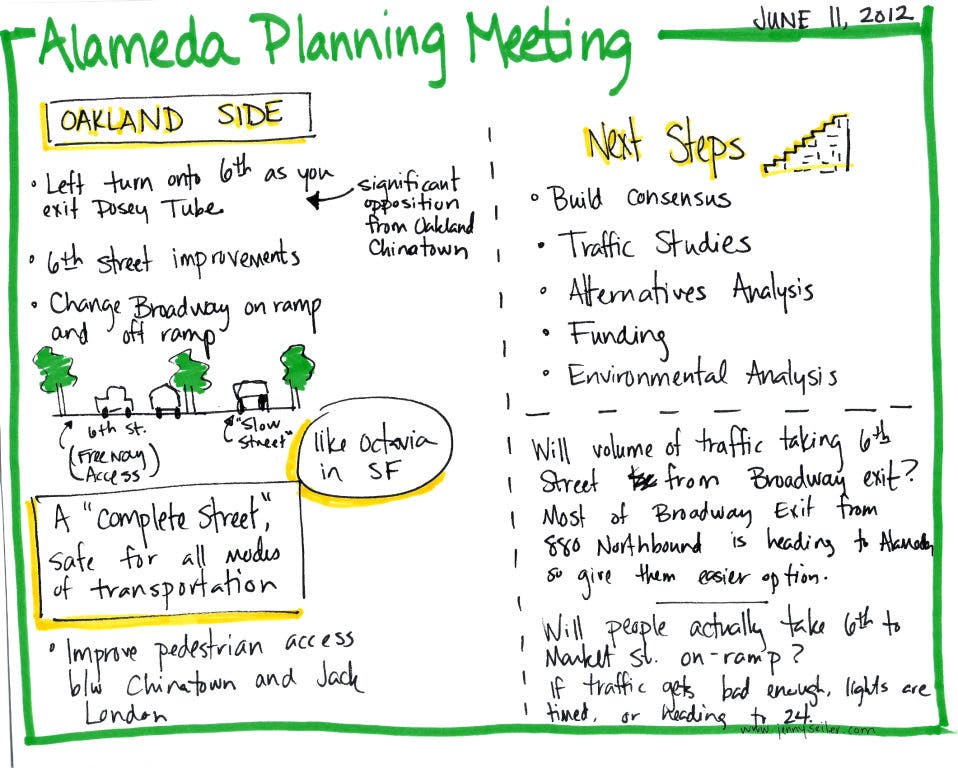 Alameda Planning Meeting
JUNE 11, 2012
OAKLAND SIDE
• Left turn onto 6th as you
exit Posey Tube
significant
opposition
from Oakland
Chinatown
• 6th street improvements
• Change Broadway on ramp
and off ramp
6th St.
(Freeway
Access)
"Slow
Street"
like Octavia
in SF
A "Complete Street",
safe for all modes
of transportation
• Improve pedestrian access
b/w Chinatown and Jack
London
Next Steps
• Build Consensus
• Traffic Studies
• Alternatives Analysis
• Funding
• Environmental Analysis
Will volume of traffic taking 6th
Street from Broadway exit?
Most of Broadway Exit from
880 Northbound is heading to Alameda
so give them easier option.
Will people actually take 6th to
Market St. on-ramp?
If traffic gets bad enough, lights are
timed, or heading to 24.
www.jennyseiler.com